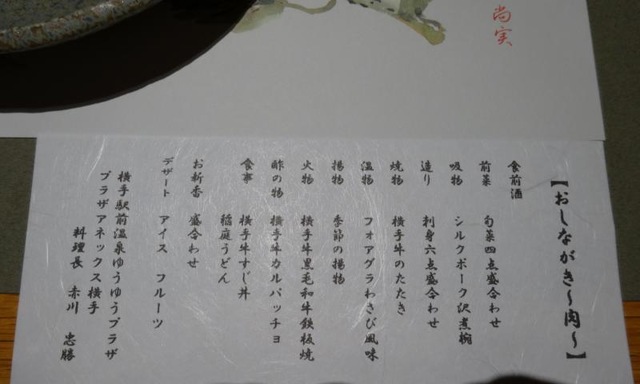 尚実
【おしながき～肉～】
食前酒
前菜 旬菜四点盛合わせ
吸物 シルクポーク沢煮椀
造り 刺身六点盛合わせ
焼物 横手牛のたたき
温物 フォアグラわさび風味
揚物 季節の揚物
火物 横手牛黒毛和牛鉄板焼
酢の物 横手牛カルパッチョ
食事 横手牛すじ丼
稲庭うどん
お新香 盛合わせ
デザート アイス フルーツ
横手駅前温泉ゆうゆうプラザ
プラザアネックス横手
料理長 赤川 忠勝